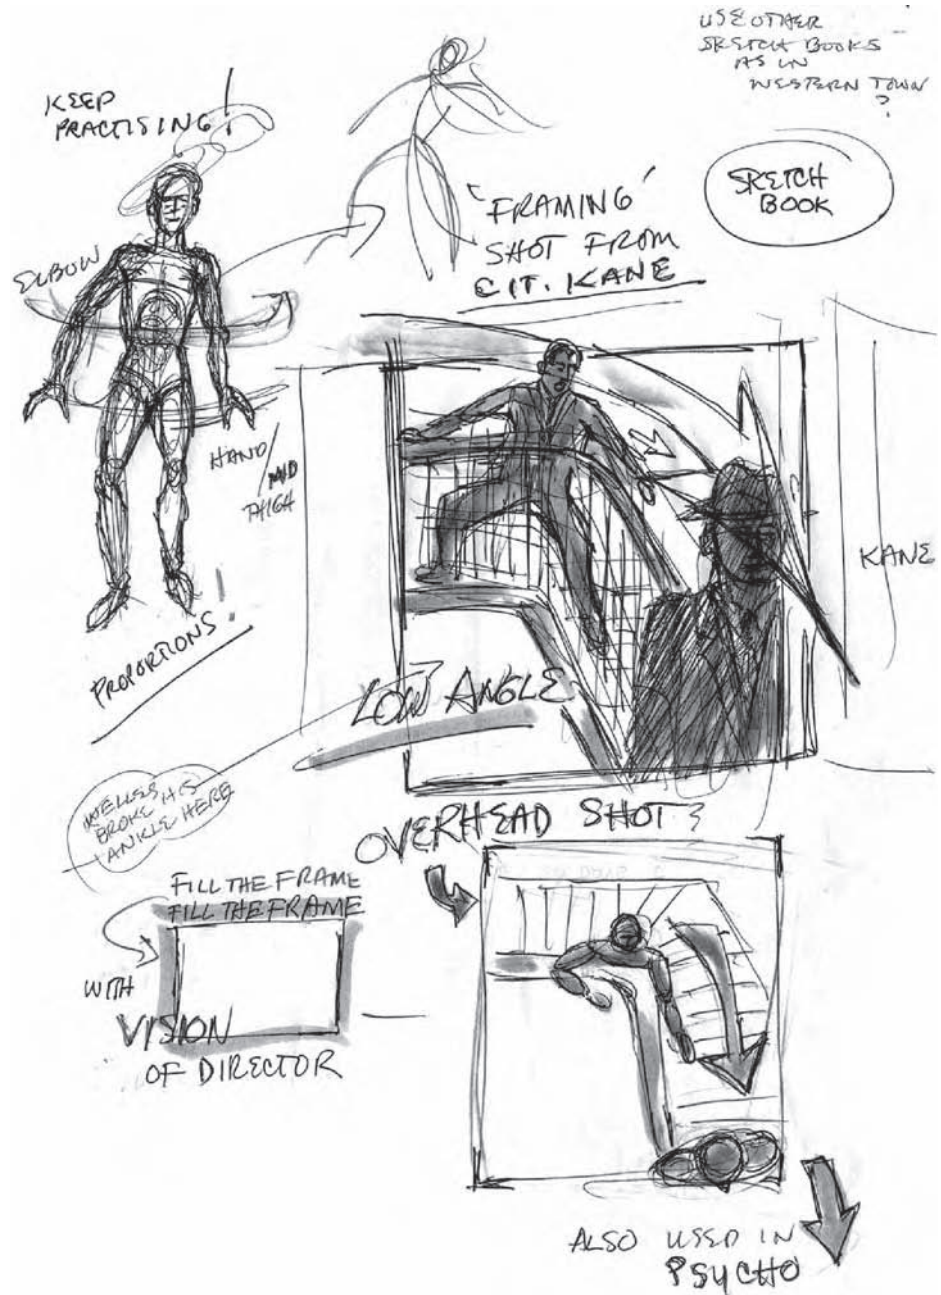 USE OTHER
SKETCH BOOKS
AS IN
WESTERN TOWN
?
KEEP
PRACTISING!
SKETCH
BOOK
'FRAMING'
SHOT FROM
CIT. KANE
ELBOW
HAND/
MID
THIGH
KANE
PROPORTIONS!
LOW ANGLE
WELLES
BROKE HIS
ANKLE HERE
OVERHEAD SHOT?
FILL THE FRAME
FILL THE FRAME
WITH
VISION
OF DIRECTOR
ALSO USED IN
PSYCHO